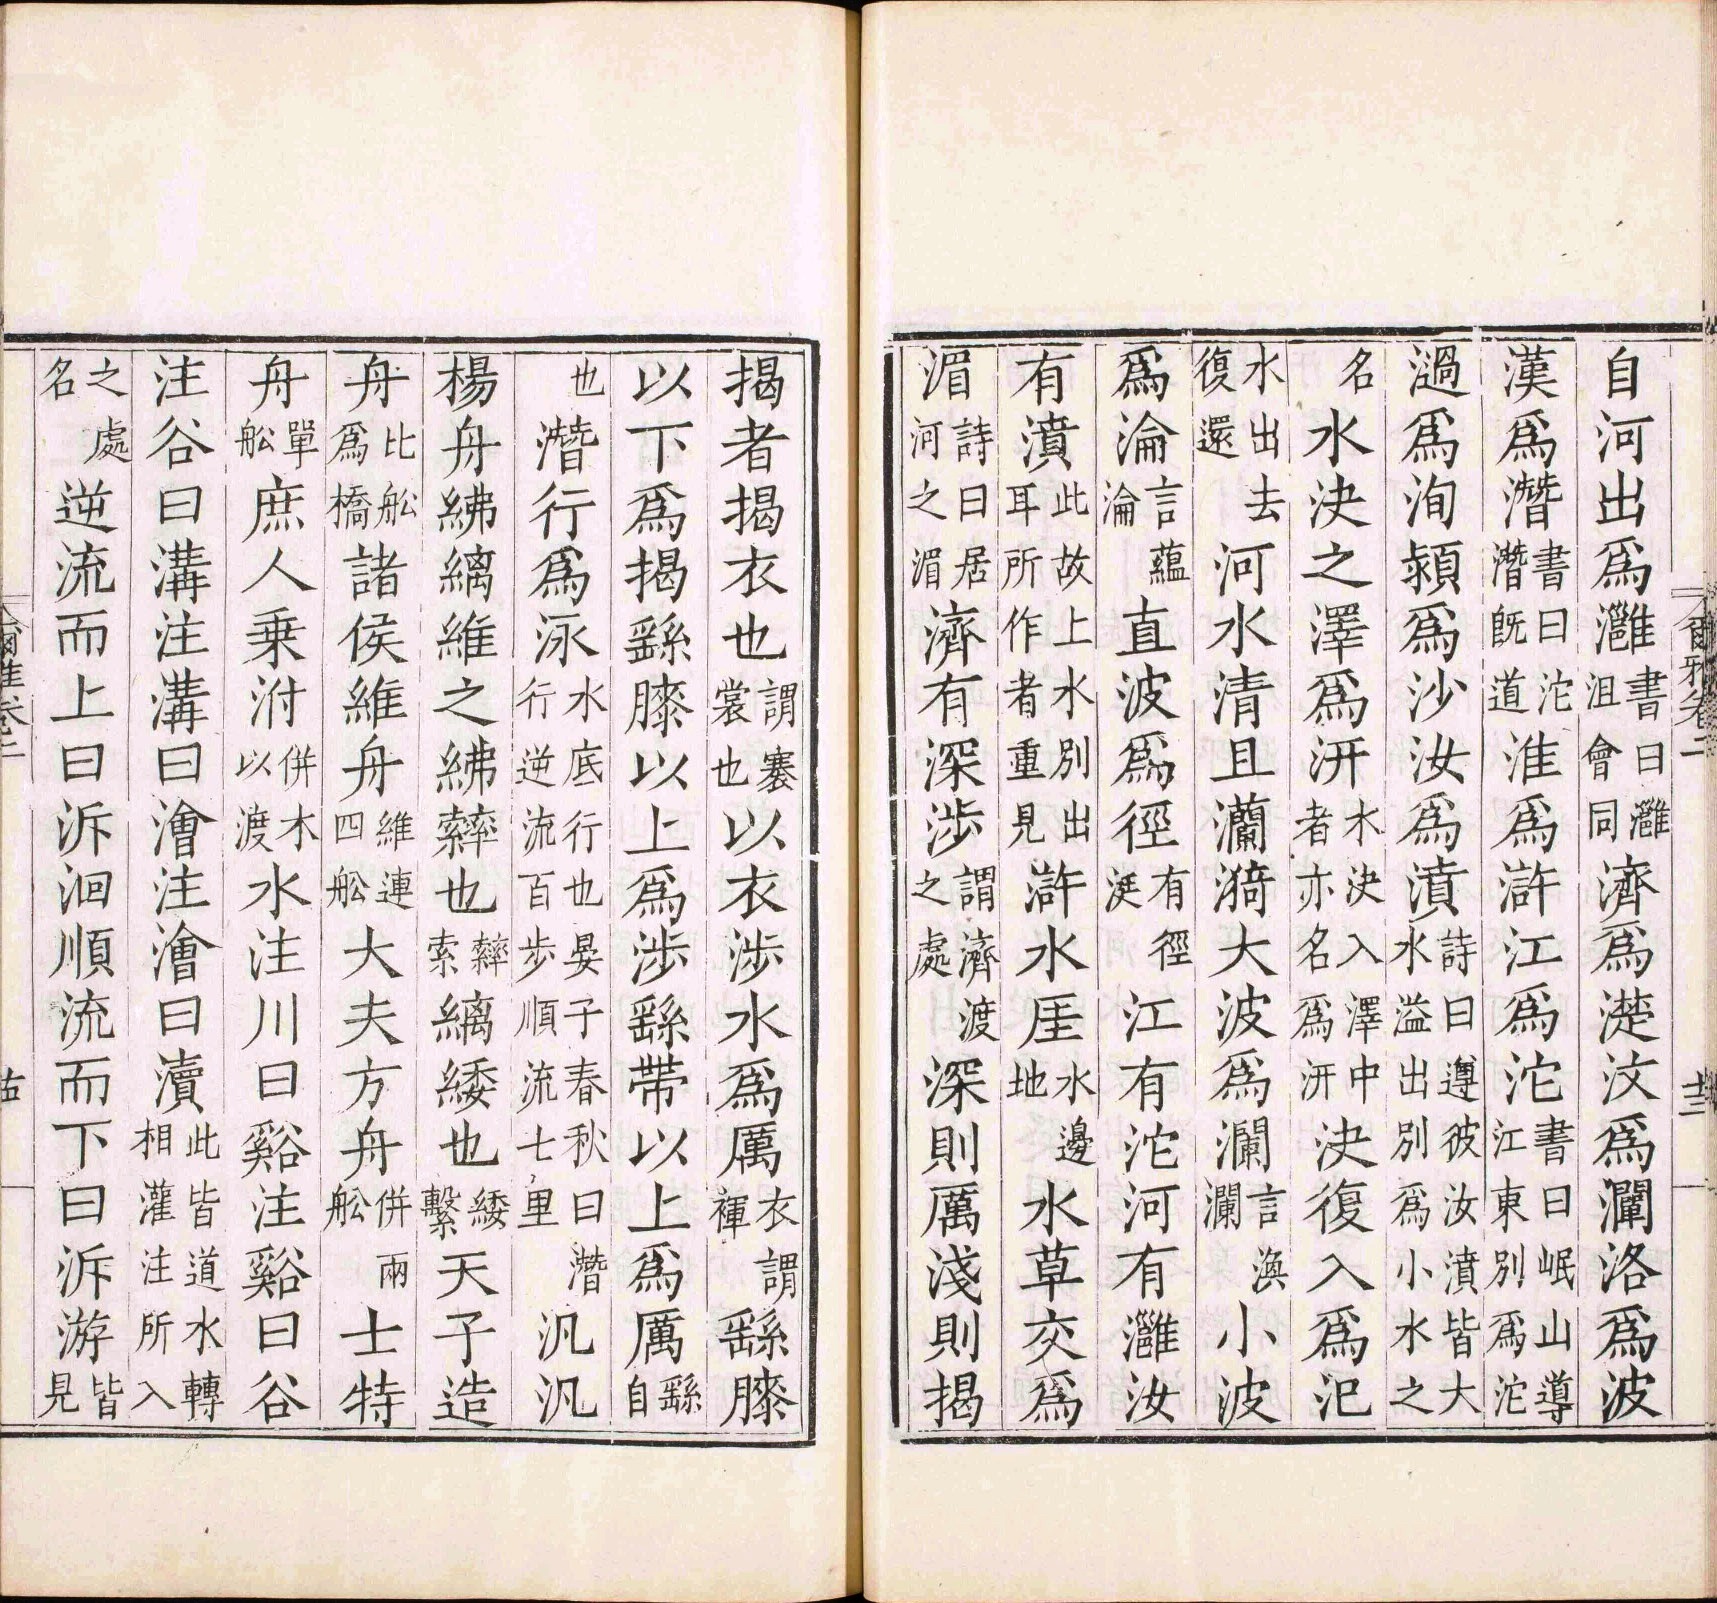 自河出爲灉書曰灉沮會同濟爲濋汶爲灛洛爲波
漢爲潛書曰沱潛旣道淮爲滸江爲沱書曰岷山導江東別爲沱
過爲洵潁爲沙汝爲濆詩曰遵彼汝濆皆大水溢出別爲小水之
名水決之澤爲汧水決入澤中者亦名爲汧決復入爲汜
水出去復還河水清且瀾漪大波爲瀾言渙瀾小波
爲淪言蘊淪直波爲徑有徑涏江有沱河有灉汝
有濆此故上水別出耳所作者重見滸水厓水邊地水草交爲
湄詩曰居河之湄濟有深涉謂濟渡之處深則厲淺則揭
爾雅卷二
十三
揭者揭衣也謂褰裳也以衣涉水爲厲衣謂褌繇膝
以下爲揭繇膝以上爲涉繇帶以上爲厲繇自
也潛行爲泳水底行也晏子春秋曰潛行逆流百步順流七里汎汎
楊舟紼縭維之紼䋫也䋫索縭緌也緌繫天子造
舟比舩爲橋諸侯維舟維連四舩大夫方舟併兩舩士特
舟單舩庶人乗泭併木以渡水注川曰谿注谿曰谷
注谷曰溝注溝曰澮注澮曰瀆此皆道水轉相灌注所入
之處名逆流而上曰泝洄順流而下曰泝游皆見